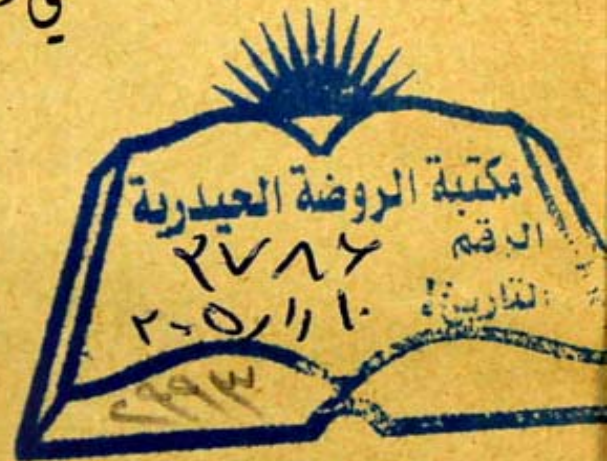 في
مكتبة الروضة الحيدرية
الرقم
٣٧٨٦
التاريخ
٢٠٠٥/١/١٠